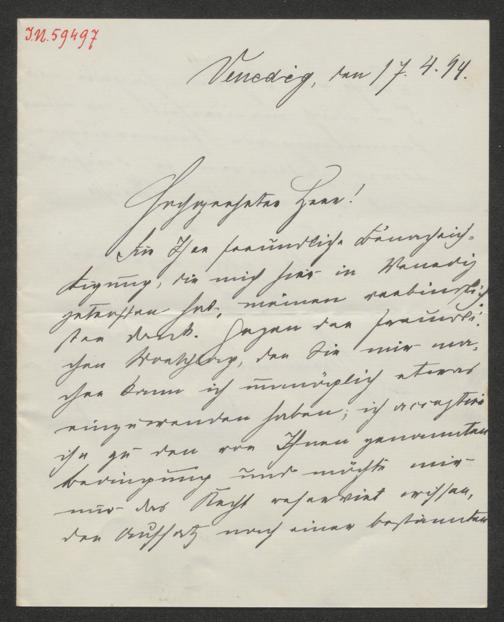 J.N. 59497
Venedig, den 17.4.94.
Hochgeehrter Herr!
Für Ihre freundliche Benachrich-
tigung, die mich hier in Venedig
getroffen hat, meinen verbindlich
sten Dank. Gegen den freundli-
chen Vorschlag, den Sie mir ma-
chen kann ich unmöglich etwas
einzuwenden haben; ich acceptire
ihn zu den von Ihnen genannten
Bedingung und möchte mir
nur das Recht reservirt wissen,
den Aufsatz nach einer bestimmten